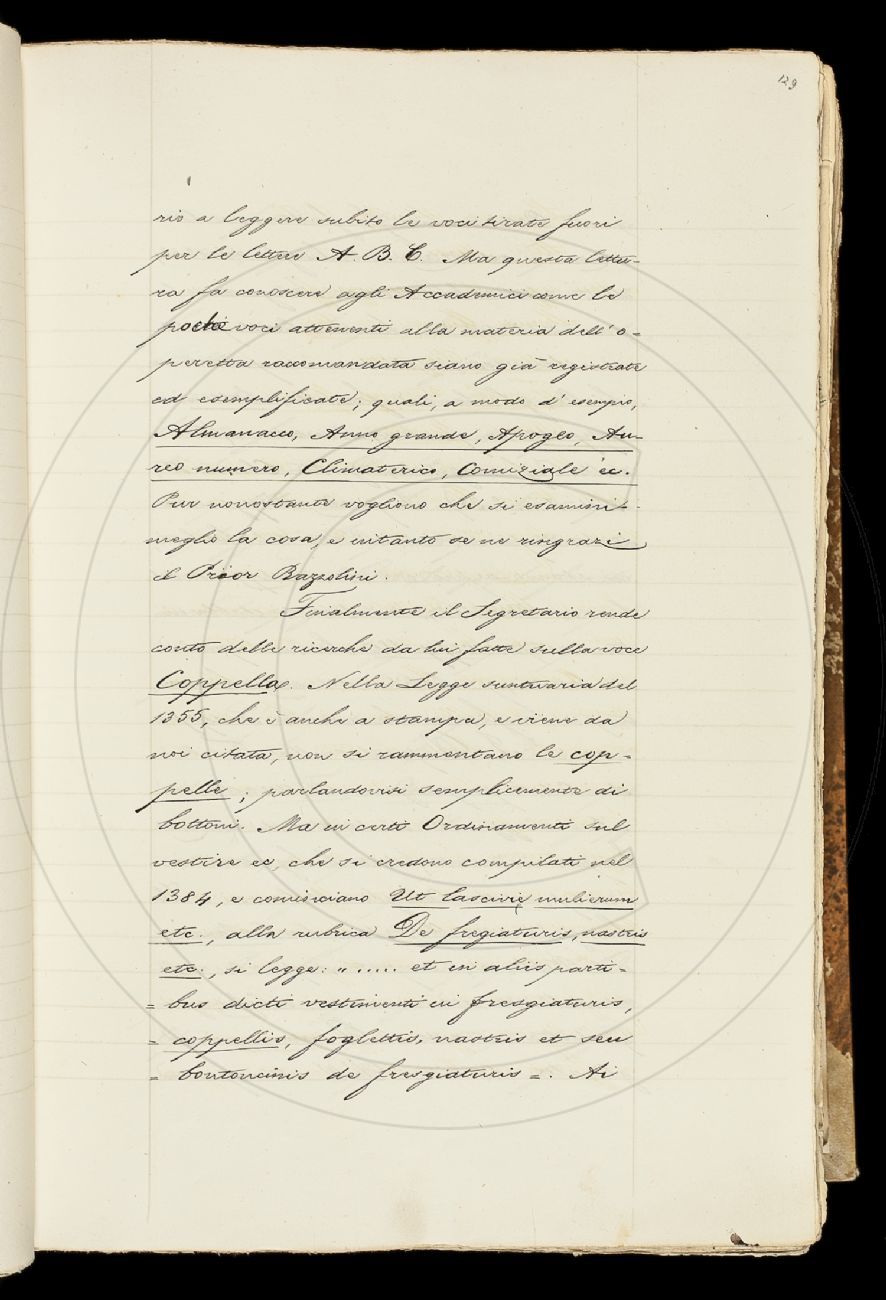 129
rio a leggere subito le voci tirate fuori
per le lettere A. B. C. Ma questa lettu-
ra fa conoscere agli Accademici come le
poche voci attenenti alla materia dell' o=
peretta raccomandata siano già registrate
ed esemplificate; quali, a modo d' esempio,
Almanacco, Anno grande, Apogeo, Au-
reo numero, Climaterico, Comiziale ec.
Pur nonostante vogliono che si esamini
meglio la cosa, e intanto se ne ringrazi
il Prior Bazzolini.
Finalmente il Segretario rende
conto delle ricerche da lui fatte sulla voce
Coppella. Nella Legge suntuaria del
1355, che è anche a stampa, e viene da
noi citata, non si rammentano le cop-
pelle; parlandovisi semplicemente di
bottoni. Ma in certi Ordinamenti sul
vestire ec, che si credono compilati nel
1384, e cominciano Ut lascivie mulierum
etc., alla rubrica De fregiaturis, nastris
etc., si legge: " ..... et in aliis parti=
= bus dicti vestimenti in fresgiaturis,
= coppellis, foglettis, nastris et seu
= bontoncinis de fresgiaturis =. Ai